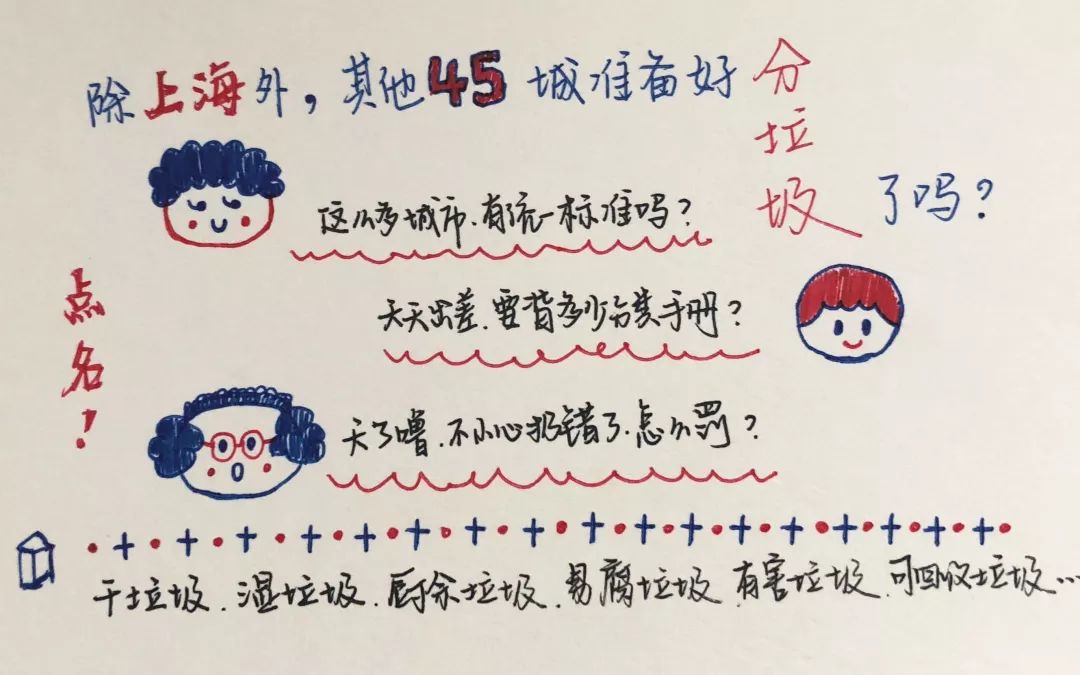 除上海外，其他45城准备好分垃圾了吗？
点名！
这么多城市，有统一标准吗？
天天出差，要背多少分类手册？
天了噜，不小心扔错了，怎么罚？
干垃圾、湿垃圾、厨余垃圾、易腐垃圾、有害垃圾、可回收垃圾…